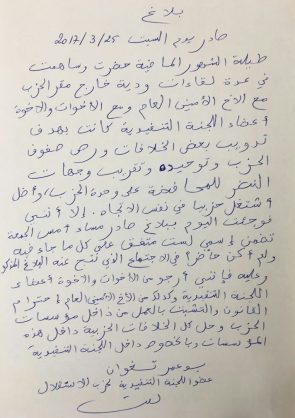 بلاغ
صادر يوم السبت 2017/3/25
طيلة الشهور الماضية حضرت وساهمت
في عدة لقاءات ودية خارج مقر الحزب
مع الأخ الأمين العام ومع الأخوات والإخوة
أعضاء اللجنة التنفيذية كانت بهدف
تذويب بعض الخلافات ورص صفوف
الحزب وتوحيده وتقريب وجهات
النظر للمحافظة على وحدة الحزب، وأظل
أشتغل حزبيا في نفس الاتجاه. إلا أنني
فوجئت اليوم ببلاغ صادر مساء أمس الجمعة
تضمن اسمي لست متفق على كل ما جاء فيه
ولم أكن حاضرا في الاجتماع الذي نتج عنه البلاغ المذكور
وعليه فإنني أرجو من الأخوات والإخوة أعضاء
اللجنة التنفيذية وكذلك من الأخ الأمين العام احترام
القانون والتشبث بالعمل من داخل مؤسسات
الحزب وحل كل الخلافات الحزبية داخل هذه
المؤسسات وبالخصوص داخل اللجنة التنفيذية
بوعمر تغوان
عضو اللجنة التنفيذية لحزب الاستقلال